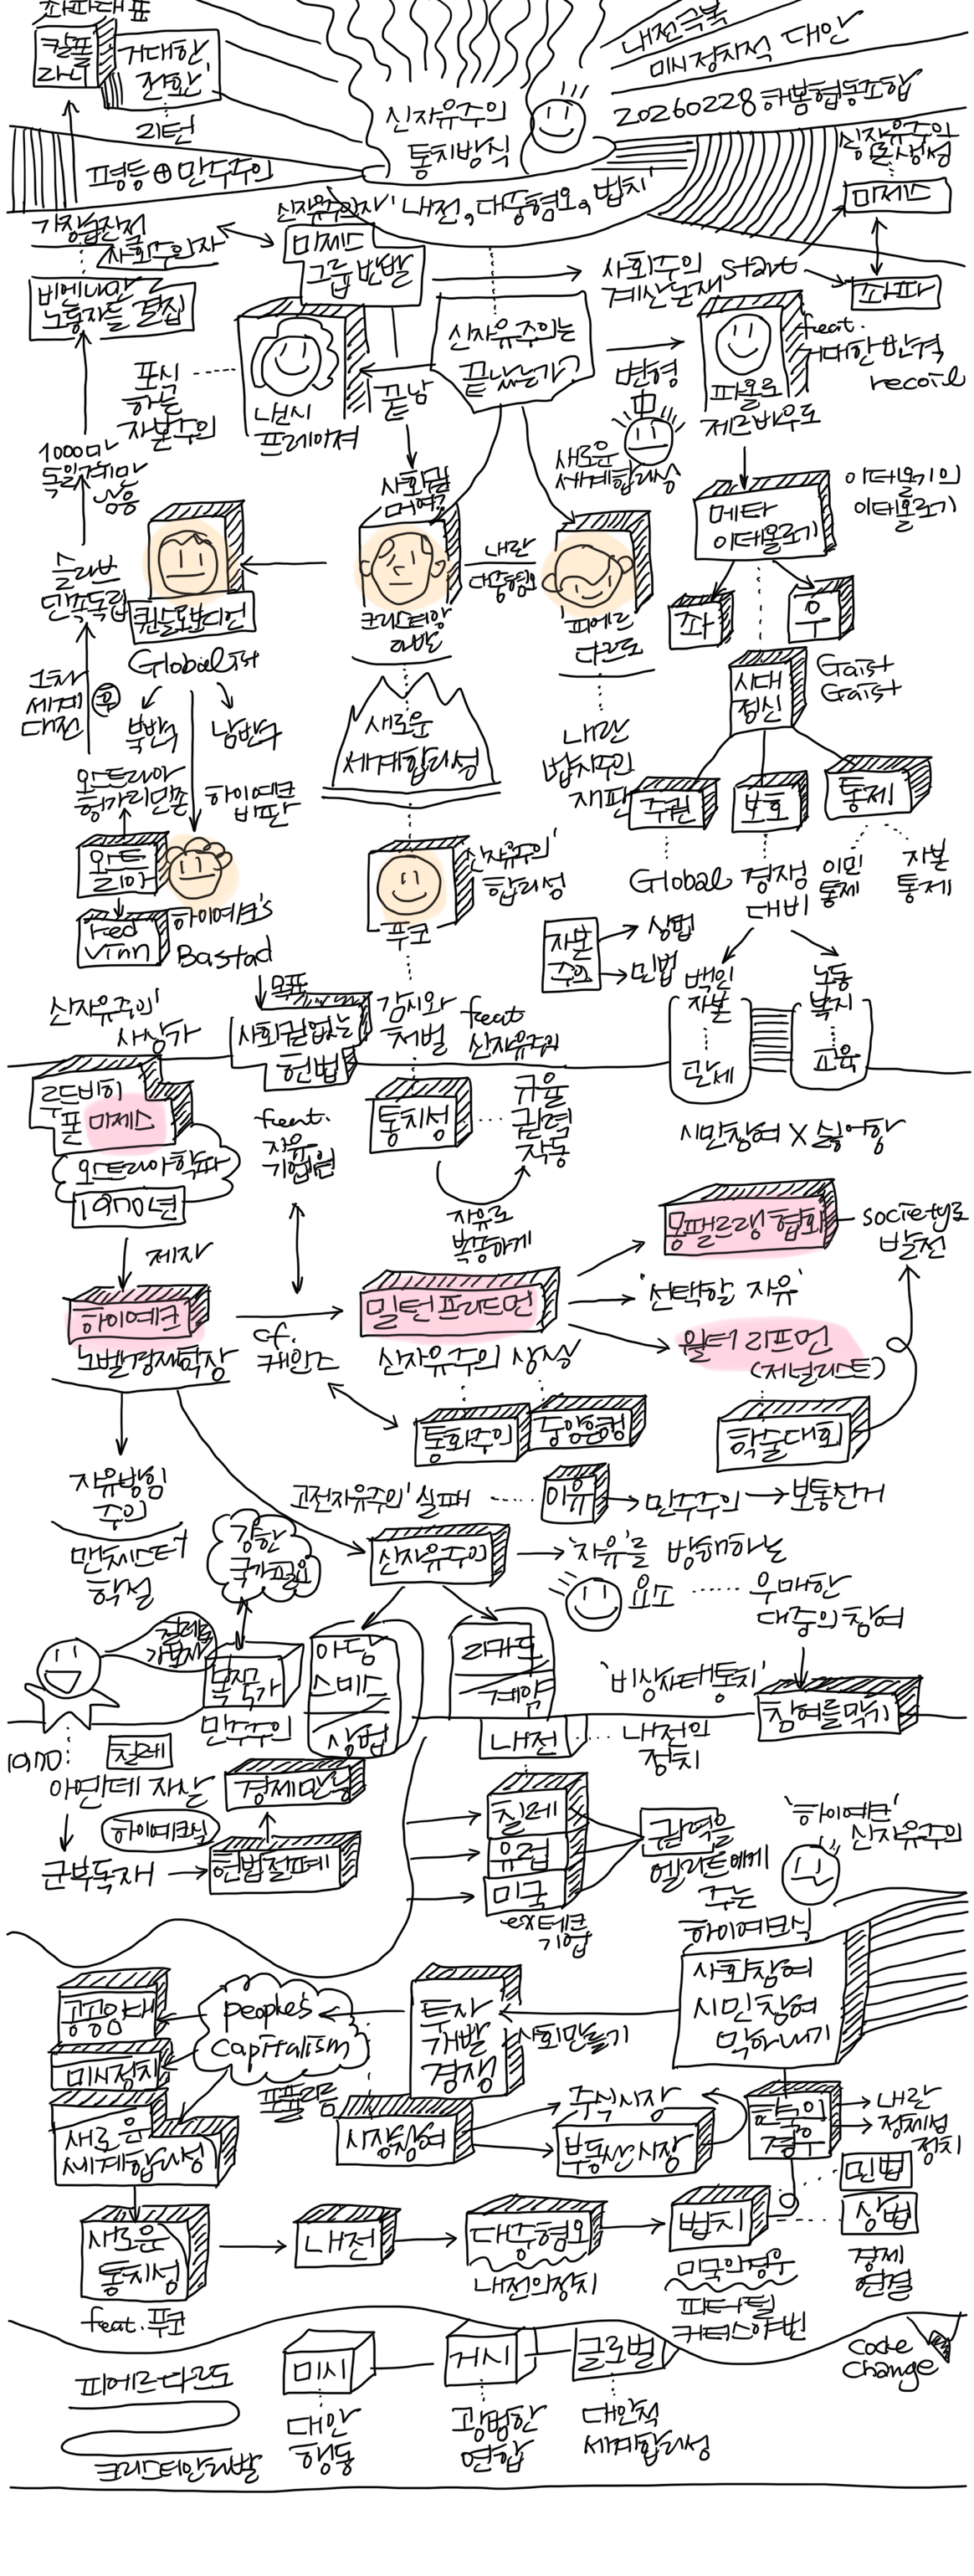 좌파대표
칼폴
라니
거대한
전환'
리턴
평등⊕민주주의
신자유주의
통치방식
'내전, 대중혐오, 법치'
내전극복
미시정치적 대안
20260228 하봄협동조합
신자유주의
미제스
좌파
가장급진적
사회주의자
비엔나만
노동자들 결집
신자유주의자'
미제스
그룹반발
사회주의
계산논쟁
start
신자유주의는
끝났는가?
끝남
변형
포식
하는
자본주의
낸시
프레이져
파올로
제르바우도
feat.
거대한반격
recoil
1000만
독일계만
남음
사회권
새로운
세계합리성
메타
이데올로기
이데올로기의
이데올로기
좌
우
슬라브
민족독립
퀸슬로보디언
Globalist
북반구
남반구
크리스티앙
라발
내란
대중혐오
피에르
다르도
시대
정신
Gaist
Gaist
1차
세계
대전
후
오스트리아
헝가리민족
하이예크
비판
새로운
세계합리성
내란
법치주의
재판
주권
보호
통제
Global
경쟁
대비
이민
통제
자본
통제
오스트
리아
Red
Vinn
하이예크's
Bastad
신자유주의'
합리성
푸코
자본
주의
상법
민법
백인
자본
단체
노동
복지
교육
신자유주의'
사상가
목표
사회권없는
헌법
감시와
처벌
feat
신자유주의
루드비히
폰 미제스
오스트리아학파
1970년
feat.
자유
기업원
통치성
규율
권력
작동
시민참여 X 싫어함
제자
자유로
복종하게
몽펠르랭 협회
society로
발전
하이예크
노벨경제학상
cf.
케인즈
밀턴프리드먼
'선택할 자유'
신자유주의 상식
월터 리프먼
(저널리스트)
통화주의
중앙은행
학술대회
자유방임
주의
맨체스터
학설
고전자유주의' 실패
이유
민주주의
보통선거
강한
국가필요
신자유주의
'자유'를 방해하는
요소
우매한
대중의 참여
칠레를
가보자
복지국가
민주주의
아담
스미스
상법
리카도
계약
'비상사태통치'
참여를막기
내전
내전의
정치
1970
칠레
아옌데 자살
경제만능
하이예크식
군부독재
헌법철폐
칠레
유럽
미국
ex테크
기업
권력을
엘리트에게
주는
'하이예크'
신자유주의
하이예크식
사회참여
시민참여
막아내기
공공임대
미시정치
새로운
세계합리성
people's
capitalism
포퓰리즘
투자
개발
경쟁
사회만들기
시장참여
주식시장
부동산시장
한국의
경우
내란
정체성
정치
민법
상법
경제
연결
새로운
통치성
feat. 푸코
내전
대중혐오
내전의정치
법치
미국의경우
피터 틸
커티스야빈
피에르 다르도
크리스티안라발
미시
대안
행동
거시
광범한
연합
글로벌
대안적
세계합리성
Code
Change